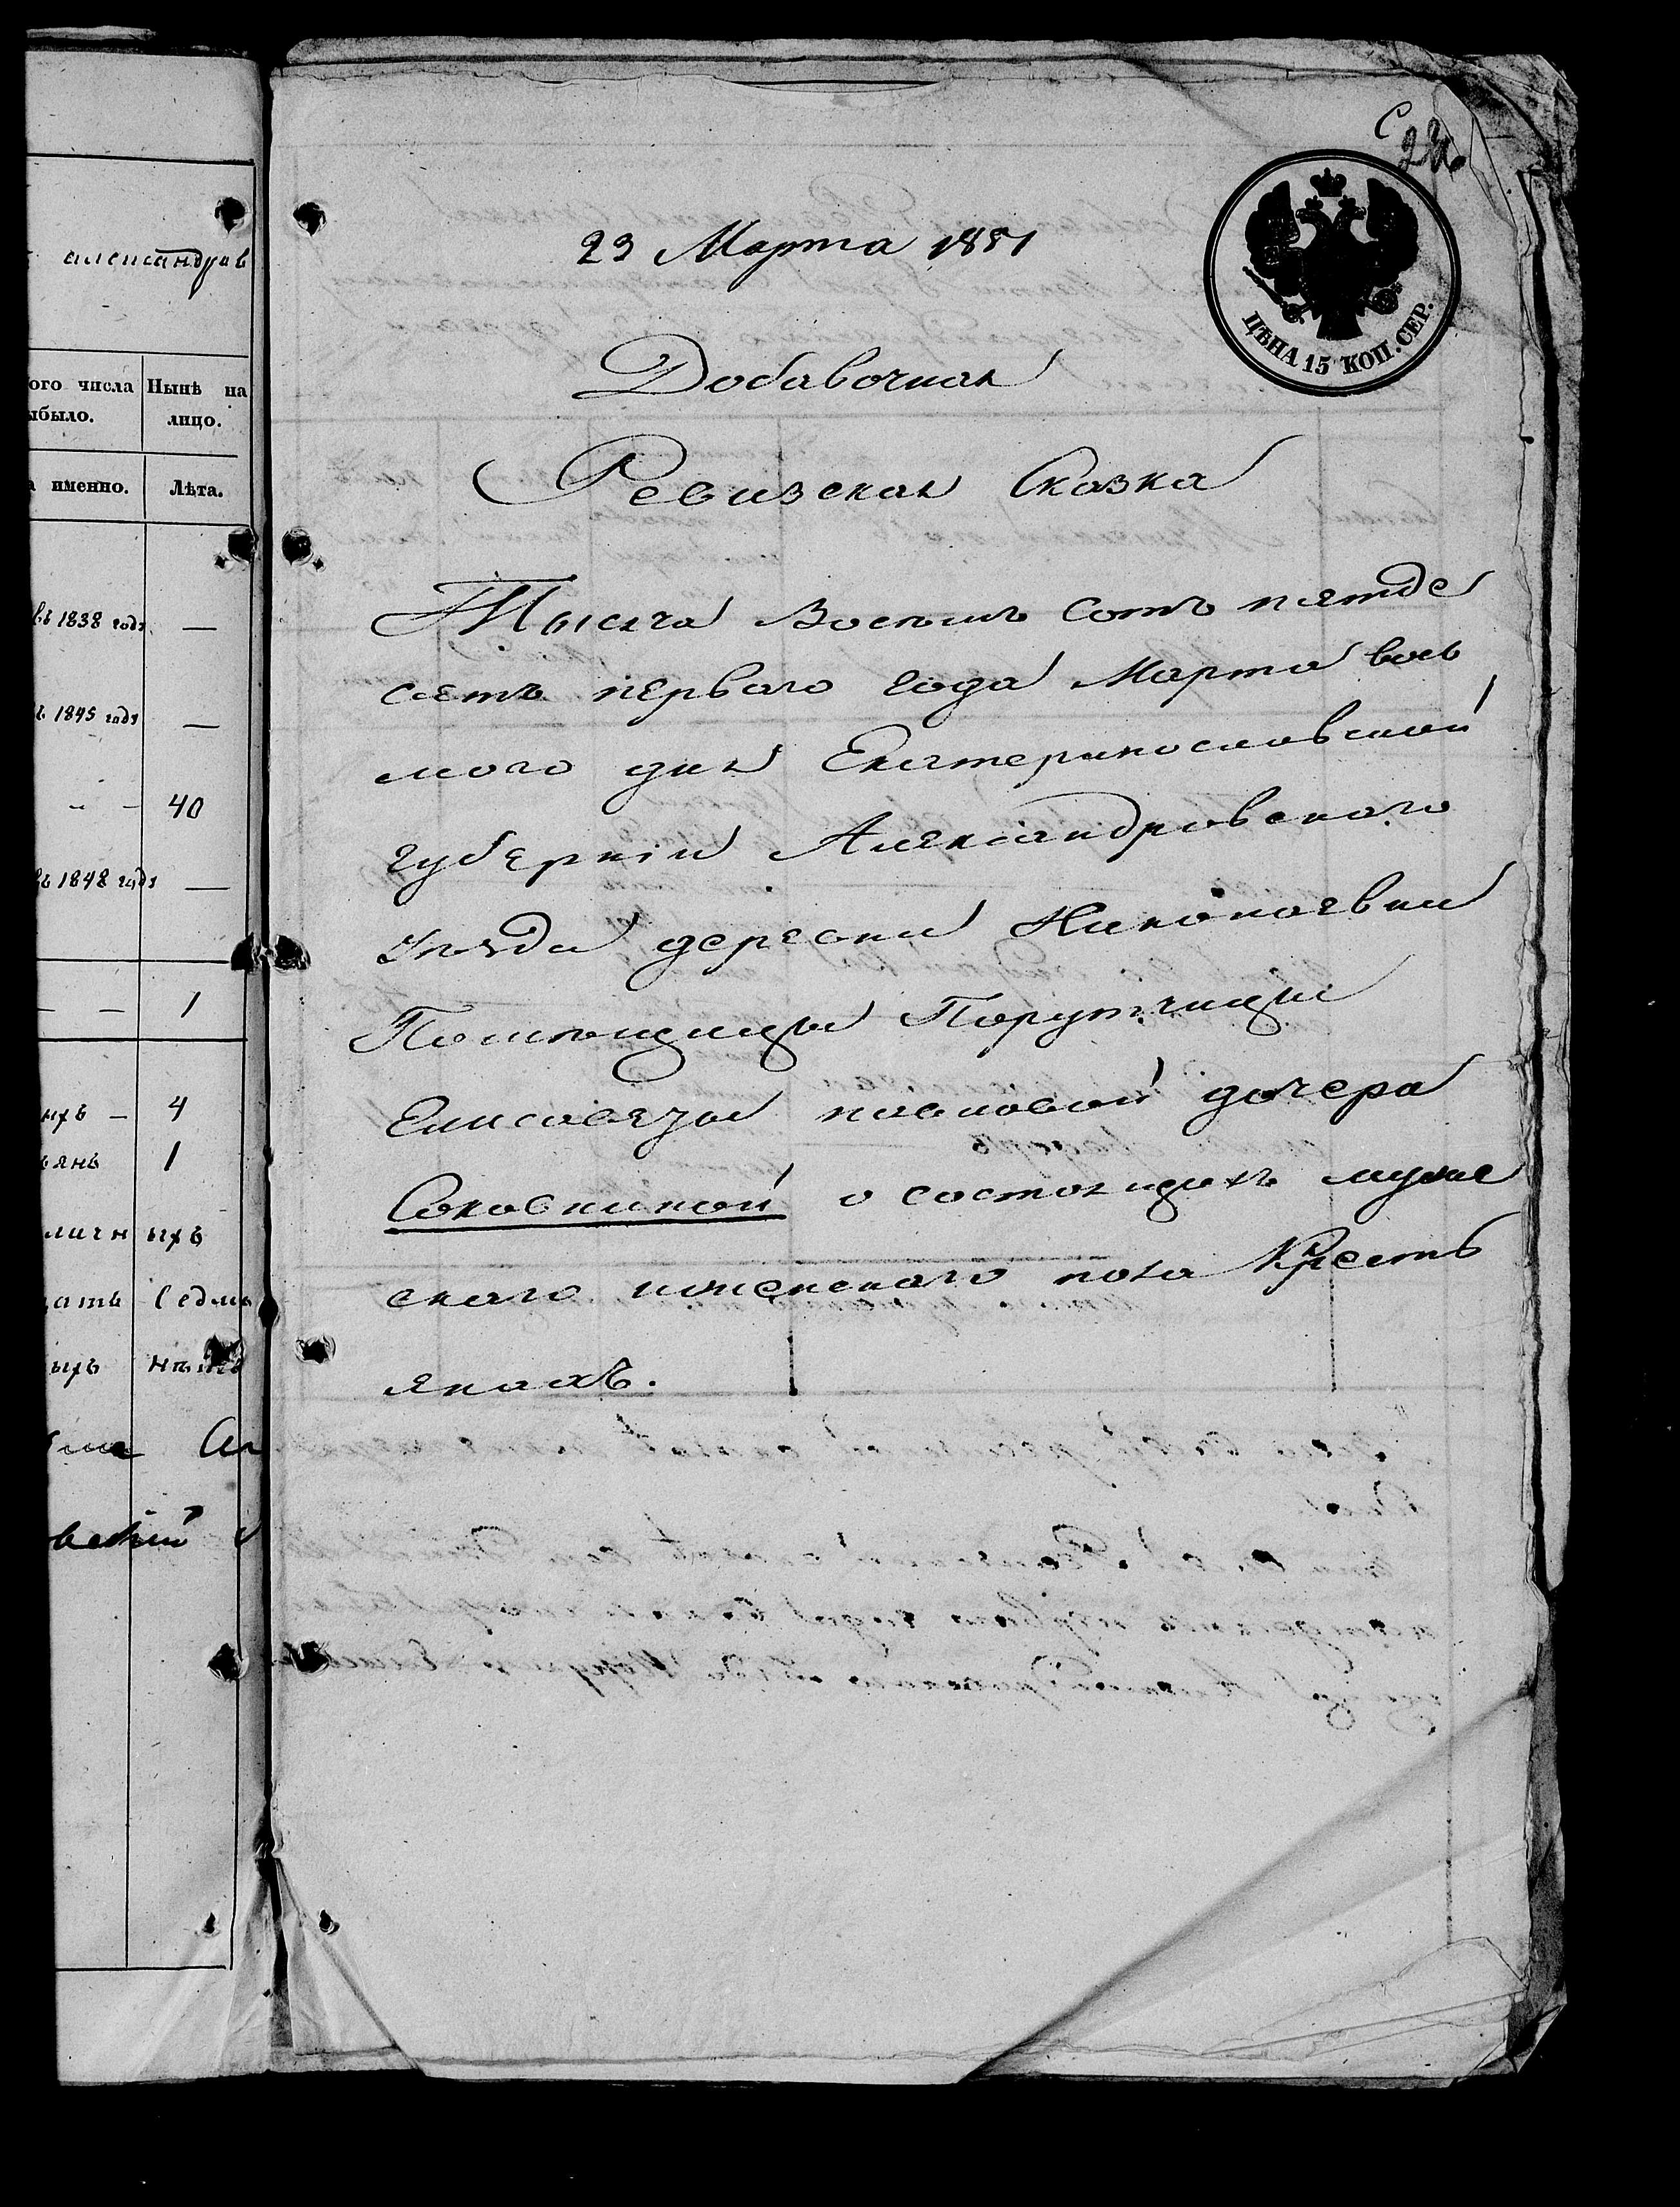 александров
ого числа Нынѣ на
ыбыло. лицо.
а именно. Лѣта.
въ 1838 годѣ —
въ 1845 годѣ —
— 40
въ 1848 годѣ —
— — 1
ыхъ — 4
ьянъ 1
личн ыхъ
ать седмь
ыхъ
23 Марта 1851
ЦѢНА 15 КОП. СЕР.
Добавочная
Ревизская Сказка
Тысяча Восемь Сотъ пятде
сятъ перваго года Марта вось
мого дня Екатеринославской
губерніи Александровскаго
уѣзда деревни Николаевки
Помѣщицы Порутчицы
Елисаветы павловой дочери
Соковниной о состоящихъ муже
скаго иженскаго пола Кресть
янахъ.